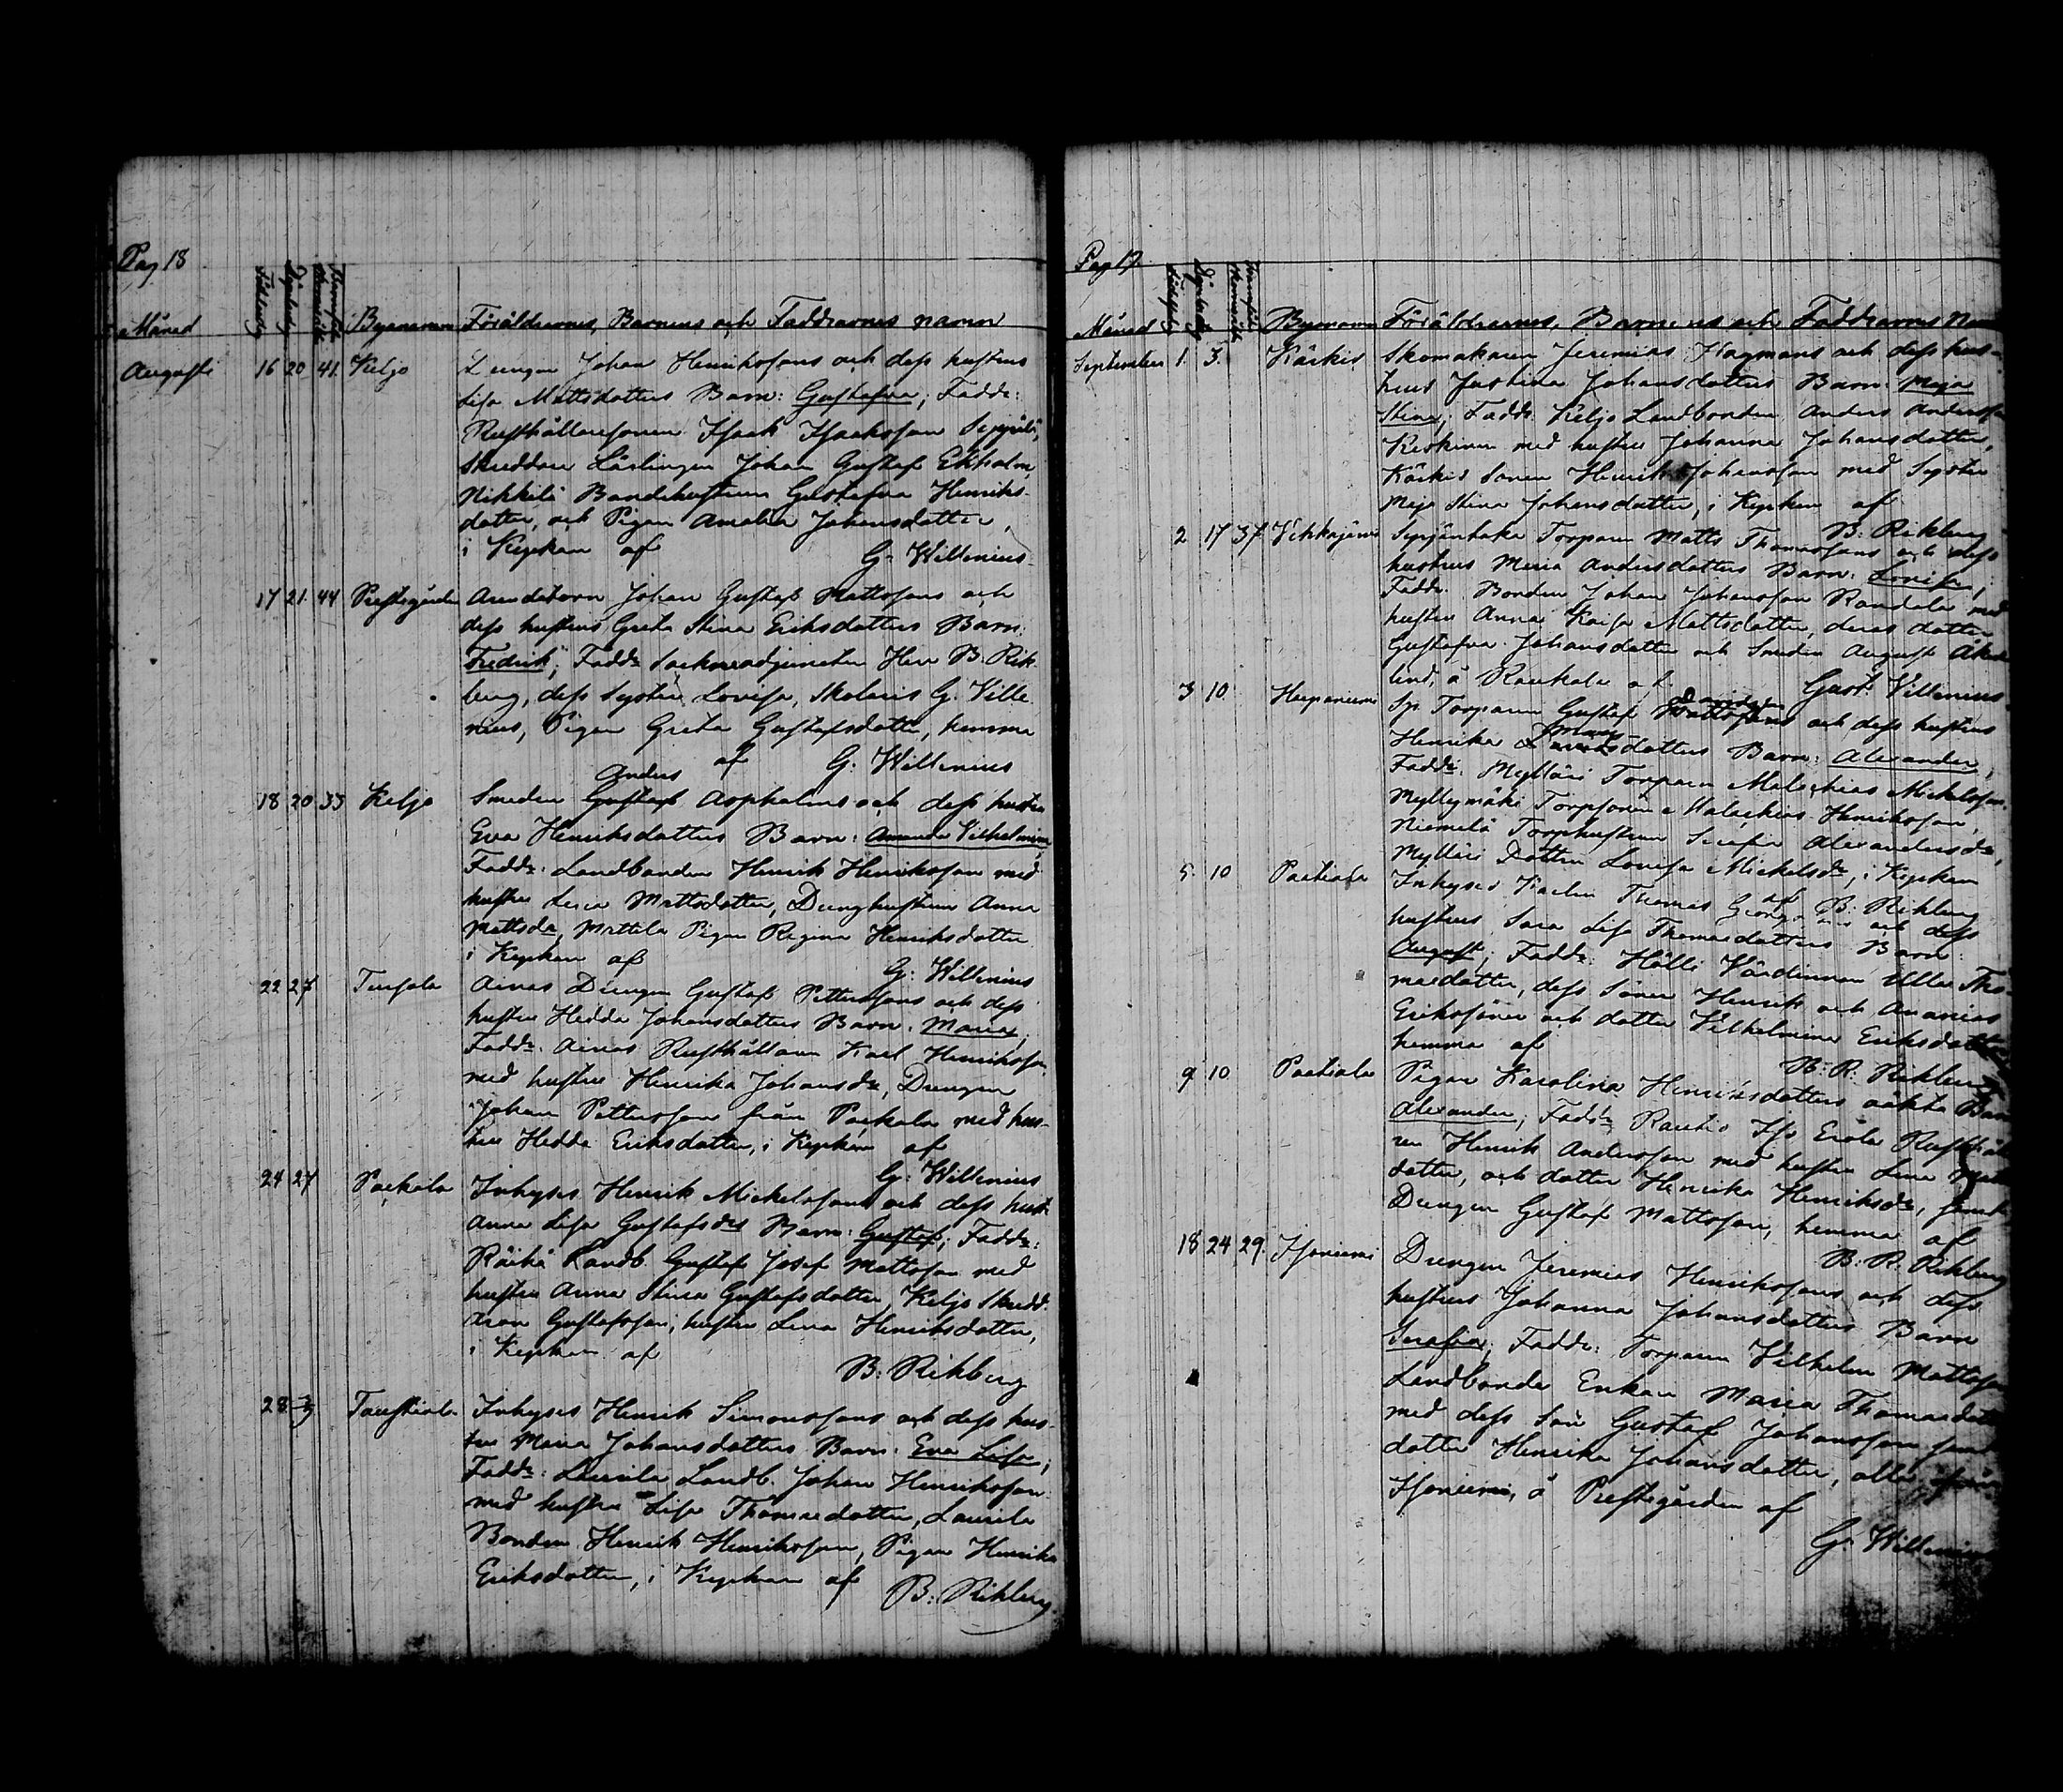 Pag 18
Månad Födelsedag Döpelsedag Byanamn Föräldrarnes, Barnens och Faddrarnes namn
Augusti 16 20 41. Keljo Drengen Johan Henrikssons och dess hustrus
Lisa Mattsdotters Barn: Gustafva; Fadd:
Rusthållaresonen Isaak Isaaksson Seppälä,
Skreddare Lärlingen Johan Gustaf Ekholm,
Nikkilä Bondehustrun Gustafva Henriks-
dotter, och Pigan Amalia Johansdotter,
i Kyrkan af
G. Willenius
17 21. 44 Prestegården Arendatorn Johan Gustaf Mattssons och
dess hustrus Greta Stina Eriksdotters Barn:
Fredrik; Faddr Sockneadjuncten Herr B. Rik-
berg, dess Syster Lovisa, Skolaris G. Wille
nius, Pigan Greta Gustafsdotter, hemma
af G. Willenius
Anders
18 20 33 Keljo Smeden Gustaf Aspholms och dess hustru
Eva Henriksdotters Barn: Amanda Vilhelmina;
Faddr: Landbonden Henrik Henriksson med
hustru Lena Mattsdotter, Dränghustrun Anna
Mattsdr, Mattila Pigan Regina Henriksdotter
i Kyrkan af
G. Willenius
22 27 Ainas Drengen Gustaf Petterssons och dess
hustru Hedda Johansdotters Barn: Maria;
Faddr. Ainas Rusthållaren Karl Henriksson
med hustru Henrika Johansdr, Drengen
Johan Pettersson från Paekala med hus-
tru Hedda Eriksdotter, i Kyrkan af
G. Willenius
24 27 Paekala Inhyses Henrik Mickelssons och dess hust.
Anna Lisa Gustafsdrs Barn: Gustaf; Faddr:
Räikä Landb. Gustaf Josef Mattsson med
hustru Anna Stina Gustafsdotter, Keljo Skredd.
Ivan Gustafsson, hustru Lena Henriksdotter,
i Kyrkan af
B. Rikberg
28 3/9 Taustiala Inhyses Henrik Simonssons och dess hus-
tru Maria Johansdotters Barn: Eva Lisa;
Faddr: Laurila Landb. Johan Henriksson
med hustru Lisa Thomasdotter, Laurila
Bonden Henrik Henriksson, Pigan Henrika
Eriksdotter, i Kyrkan af
B. Rikberg
Pag 19
Månad Födelsedag Döpelsedag Bynamn Föräldrarnes, Barnens och Faddrarnes Na
September 1. 3. Kärkis Skomakaren Jeremias Hagmans och dess hus-
trus Justina Johansdotters Barn: Maja
Stina; Fadd. Keljo Landbonden Anders Andersson
Keskinen med hustru Johanna Johansdotter,
Kärkis Sonen Henrik Johansson med Syster
Maja Stina Johansdotter, i Kyrkan af
B. Rikberg
2 17 37 Torparen Matts Thomassons och dess
hustrus Maria Andersdotters Barn: Lovisa;
Faddr. Bonden Johan Johansson Randala med
hustru Anna Kaisa Mattsdotter, deras dotter
Gustafva Johansdotter och Smeden August Åker
lind, å Raukala af
Gust. Villenius
3 10 Haapaniemi Sp. Torparen Gustaf Davidssons och dess hustrus
Henrika dotters Barn: Alexander;
Faddr: Mylläri Torparen Malachias Mickelsson,
Myllymäki Torpsonen Malachias Henriksson,
Niemelä Torphustrun Serafia Alexandersdr,
Mylläri Dotter Lovisa Mickelsdr, i Kyrkan
af B. Rikberg
5. 10 Paatiala Inhyses Karlen Thomas Georgssons och dess
hustrus Sara Lisa Thomasdotters Barn:
August; Faddr: Hölli Värdinnan Ulla Tho-
masdotter, dess Söner Henrik och Ananias
Erikssöner och dotter Vilhelmina Eriksdotter,
hemma af
B. R. Rikberg
9 10 Paatiala Pigan Karolina Henriksdotters oäkta Barn
Alexander; Faddr Rautio Rusthålla
ren Henrik Andersson med hustru Lena
dotter, och dotter Henrika Henriksdr, samt
Drengen Gustaf Mattsson, hemma af
B. R. Rikberg
18 24 29. Isoniemi Drengen Jeremias Henrikssons och dess
hustrus Johanna Johansdotters Barn
Serafia; Faddr: Torparen Vilhelm Mattsson
Landbonde Enkan Maria Thomasdotter
med dess Son Gustaf Johansson samt
dotter Henrika Johansdotter, alla från
Isoniemi, å Prestegården af
G. Willenius